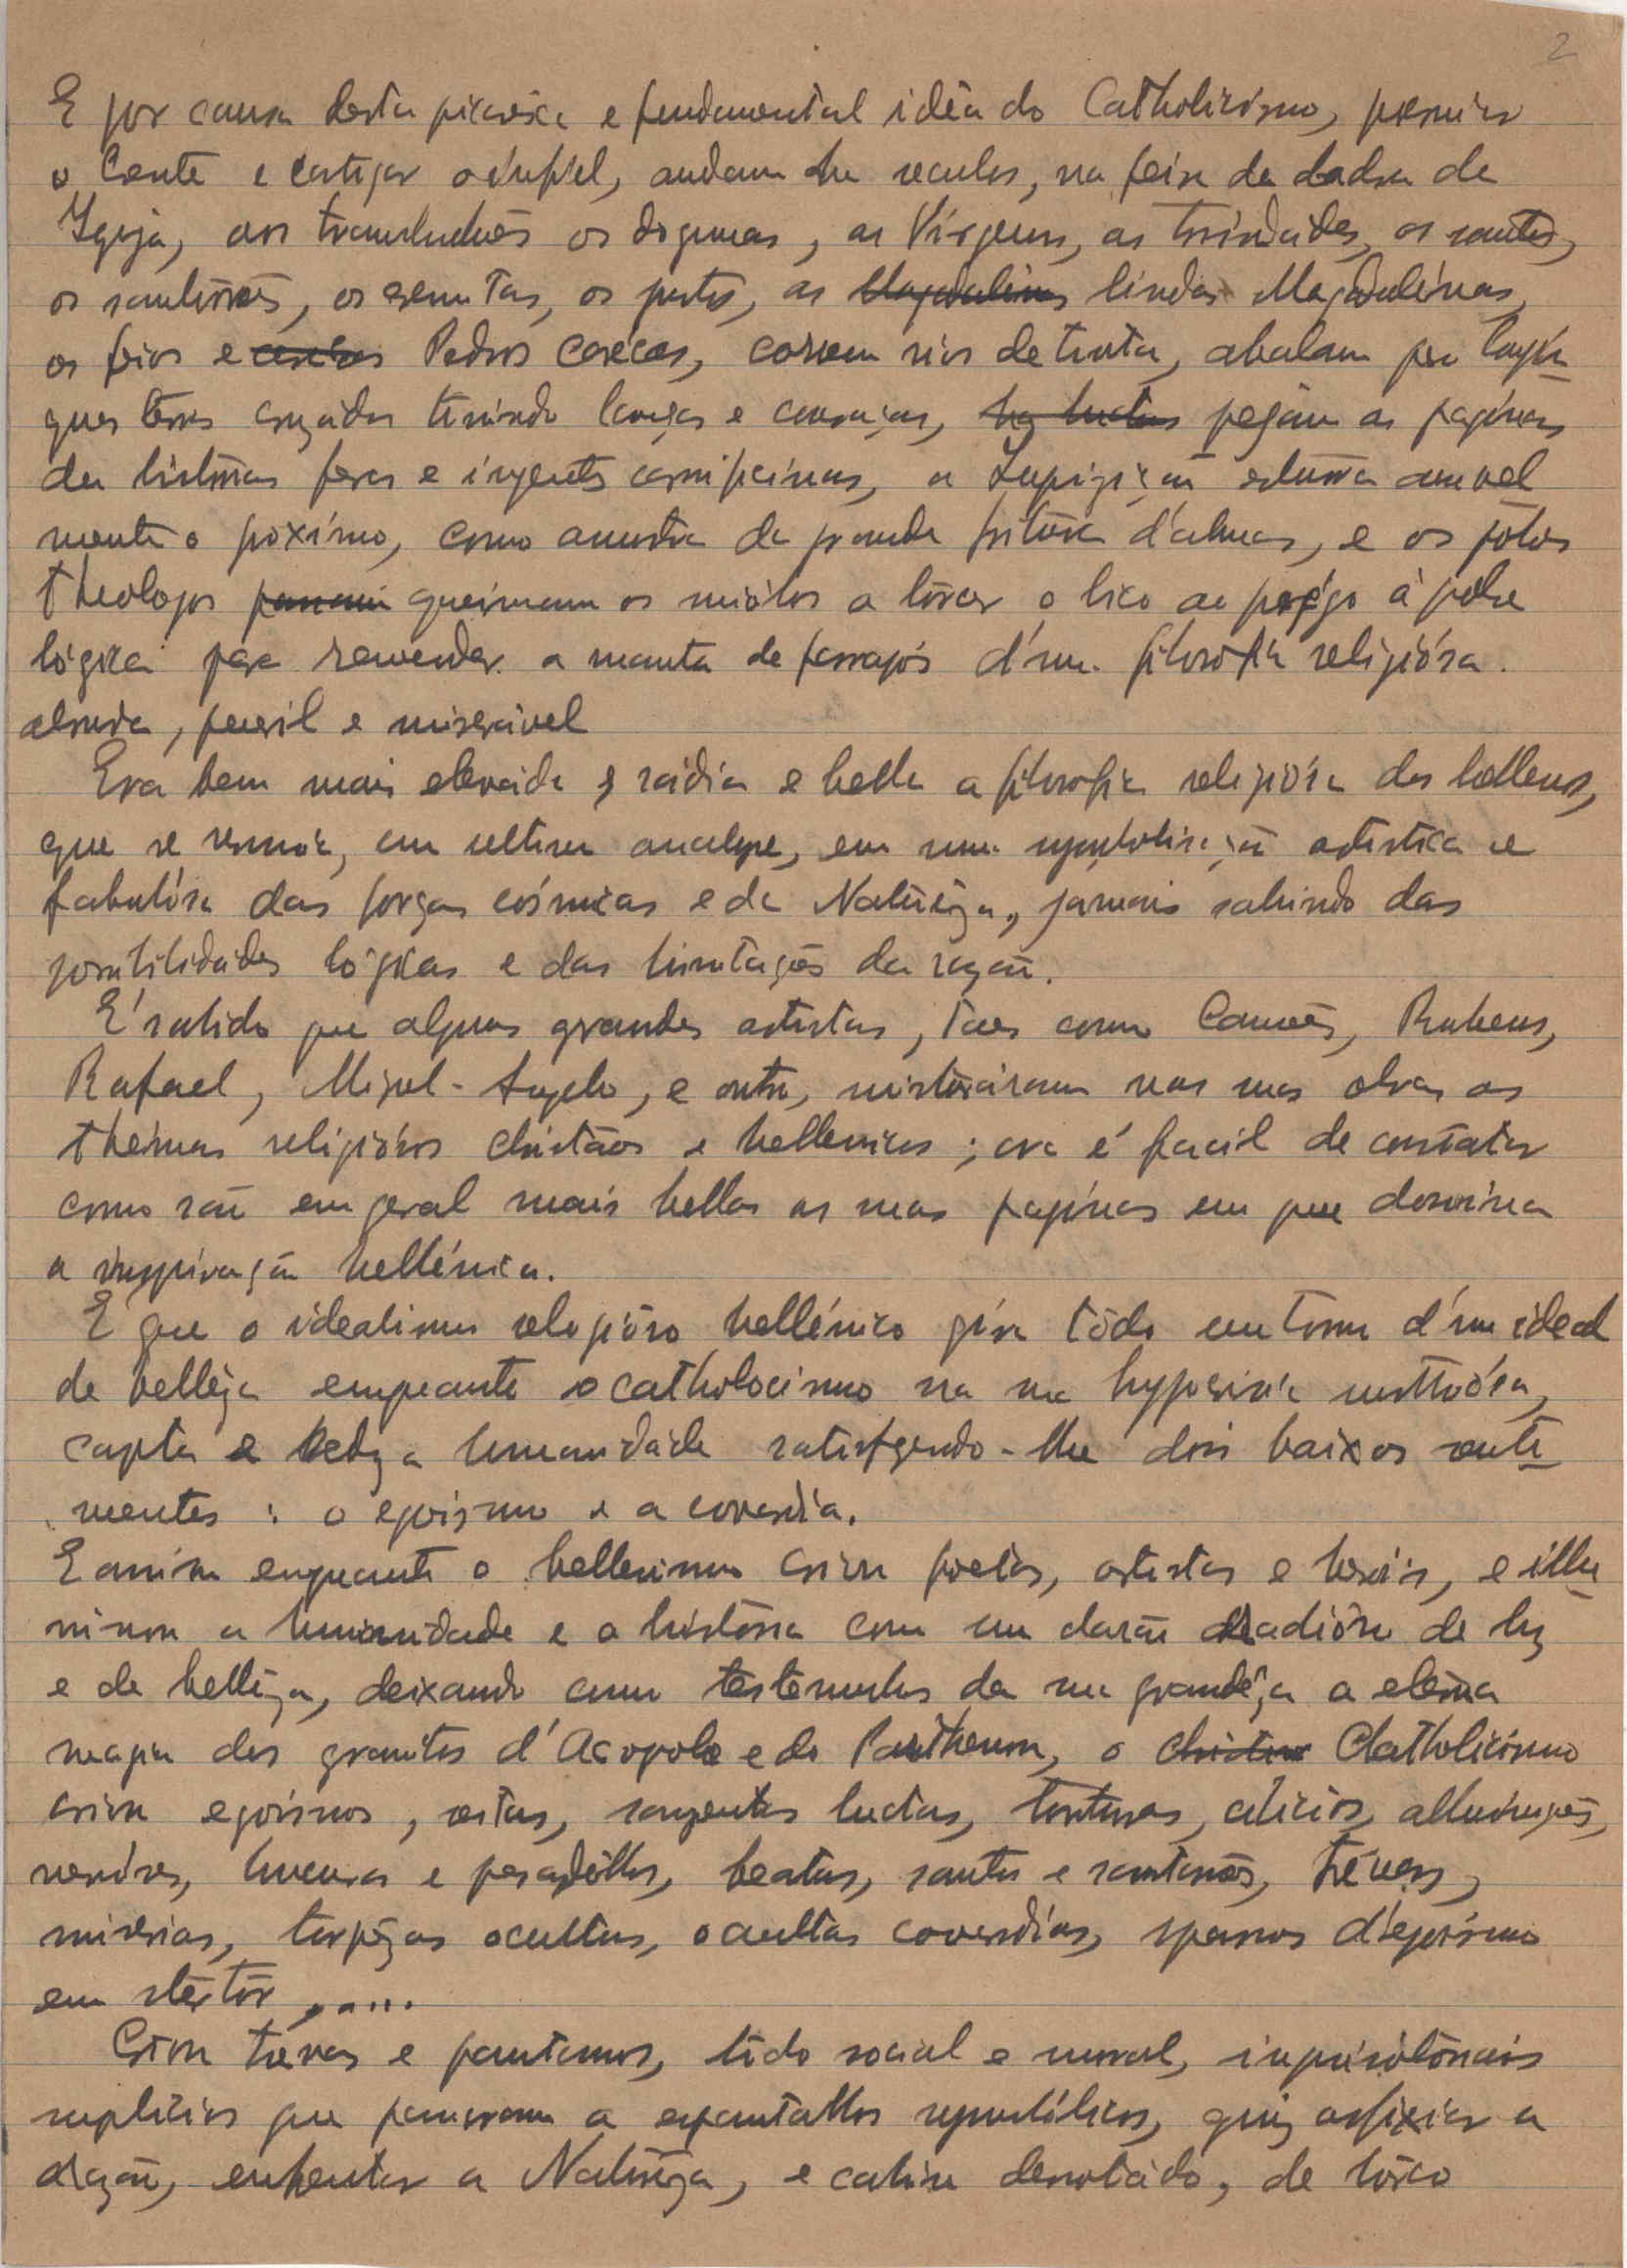 2
E por causa desta picarêsca e fundamental idêa do Catholicismo, premiar
o Crente e castigar o infiel, andam ha seculos, na feira da ladra da
Igreja, aos trambulhões os dogmas, as Virgens, as trindades, os santos,
os santões, os as lindas Magdalénas,
os feios e Pedros carécas, correm rios de tinta, abalam pra longín
quas terras cruzados tinindo lanças e couraças, pejam as paginas
da história feras e ingentes carnificinas, a Inquisição esturra amavel
mente o próximo, como amostra da grande fritura d'almas, e os pobres
theologos queimam os miólos a torcer o bico ao prégo á pobre
lógica para remendar a manta de farrapos d'uma filosofia religiósa
absurda, pueril e miserável
Era bem mais elevada e sádia e bella a filosofia religiósa dos hellenos,
que se resumia, em ultima analyse, em uma symbolisação artistica e
fabulósa das forças cósmicas e da Naturêza, jamais sahindo das
possibilidades lógicas e das limitações da razão.
E' sabido que alguns grandes artistas, taes como Camões, Rubens,
Rafael, Miguel-Angelo, e outros, misturáram nas suas obras os
thémas religiósos christãos e hellenicos; ora é facil de constatar
como são em geral mais bellas as suas paginas em que domina
a inspiração hellénica.
E' que o idealismo religióso hellénico gira tôdo em torno d'um ideal
de bellêza emquanto o catholocismo na sua hypocrisia
capta e seduz a humanidade satisfazendo-lhe dois baixos senti
mentos: o egoismo e a covardia.
E assim emquanto o hellenismo criou poetas, artistas e heróis, e illu
minou a humanidade e a história com um clarão radióso de luz
e de bellêza, deixando como testemunhos da sua grandêza a eterna
magia dos granitos d'Acropole e do Parthenon, o Catholicismo
criou egoismos, seitas, sangrentas luctas, torturas, cilicios, allucinações,
visões, e pesadêllos, beatas, santos e santarrões, trévas,
misérias, torpêzas ocultas, ocultas covardias, spasmos d'egoismo
em stertôr .....
Criou trévas e pantanos, lôdo social e moral, inquisitóriais
suplicios que passaram a espantalhos simbólicos, quiz asfixiar a
razão, enfrentar a Naturêza, e cahiu derrotado, de bôrco